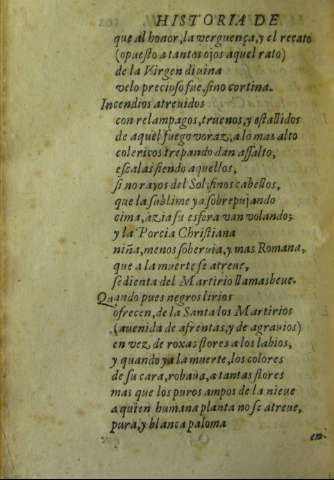 HISTORIA DE
que al honor, la verguença, y el recato
(opuesto a tantos ojos aquel rato)
de la Virgen diuina
velo precioso fue, sino cortina.
Incendios atreuidos
con relampagos, truenos, y estallidos
de aquel fuego voraz, a lo mas alto
colericos trepando dan assalto,
escalas siendo aquellos,
si no rayos del Sol, finos cabellos,
que la sublime ya sobrepujando
cima, àzia su esfera van volando;
y la Porcia Christiana
niña, menos soberuia, y mas Romana,
que a la muerte se atreue,
sedienta del Martirio llamas beue.
Quando pues negros lirios
ofrecen, de la Santa los Martirios
(auenida de afrentas, y de agrauios)
en vez de roxas flores a los labios,
y quando ya la muerte, los colores
de su cara, robaua, a tantas flores
mas que los puros ampos de la nieue
a quien humana planta no se atreue,
pura, y blanca paloma
en